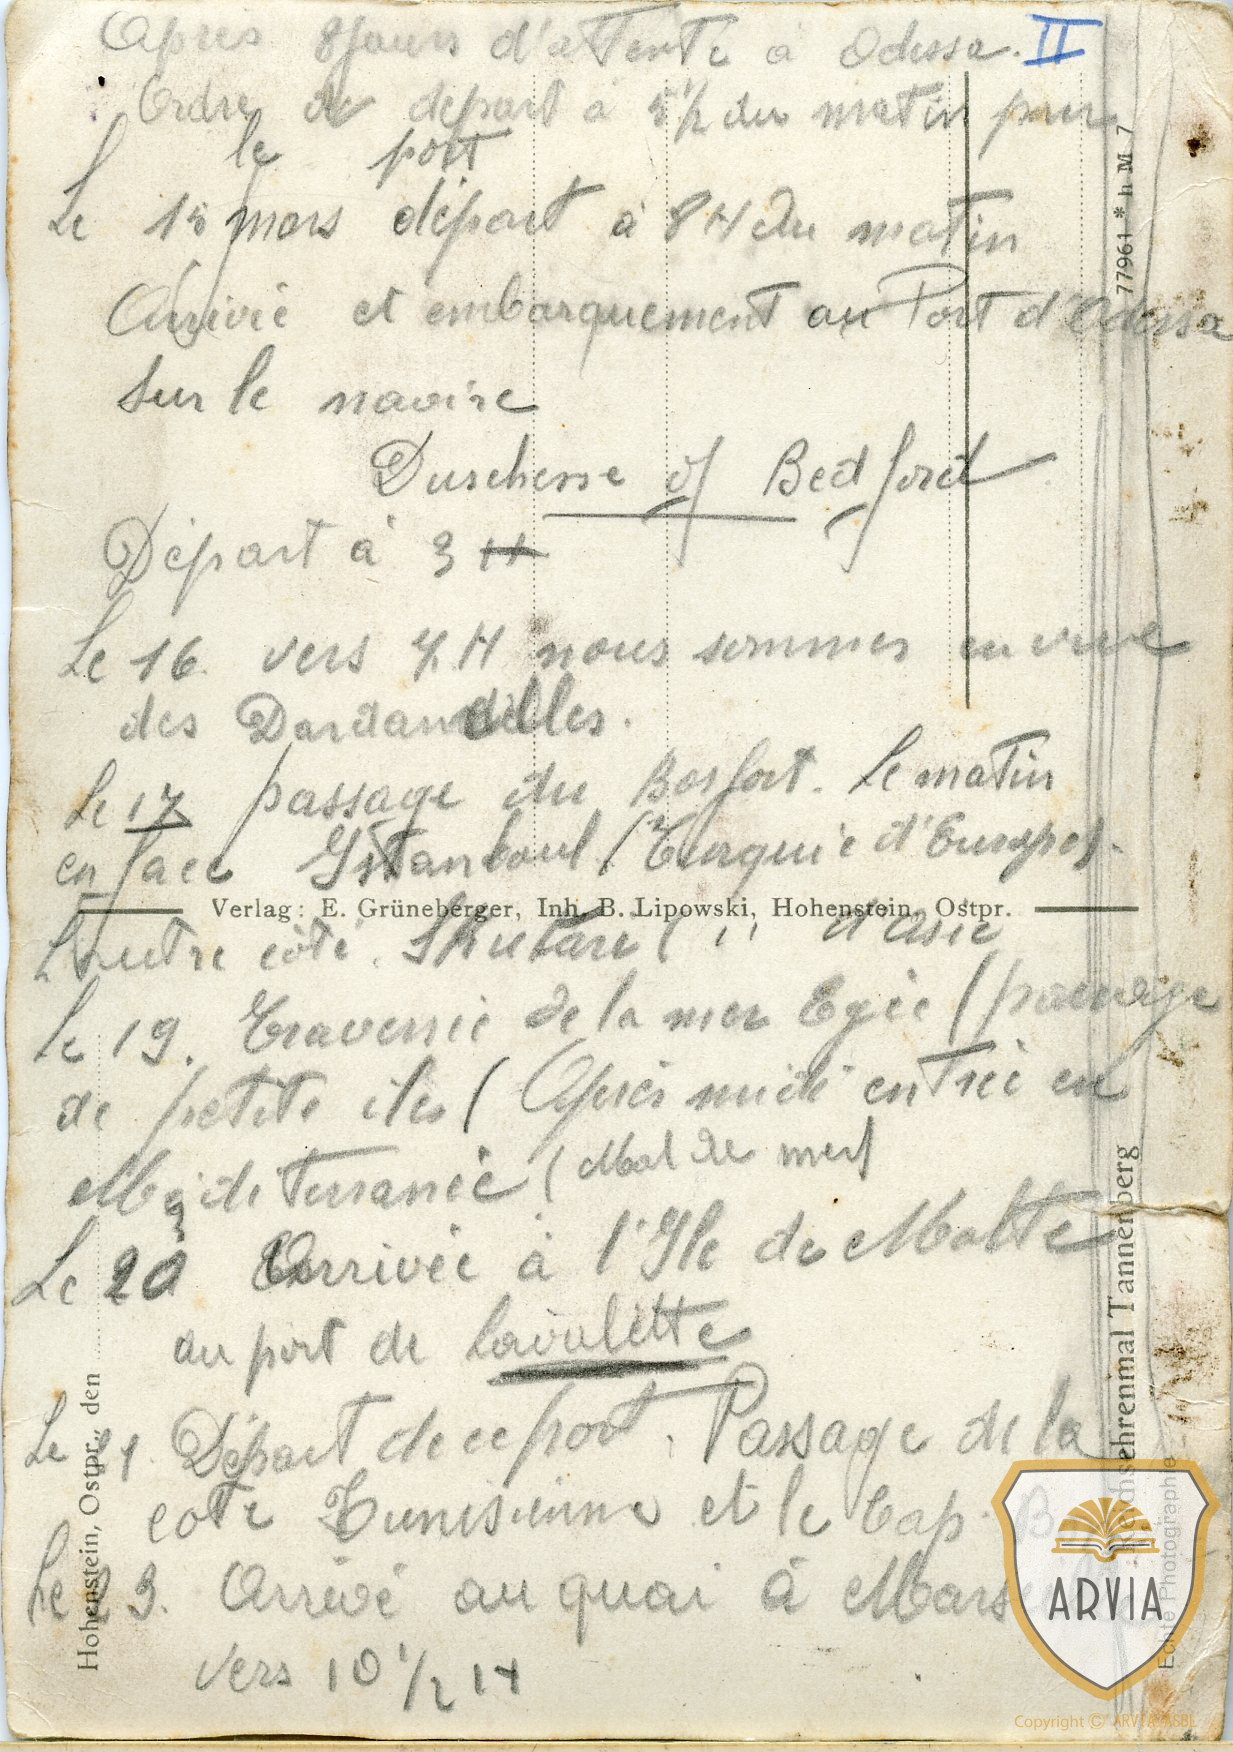 Après 8 jours d'attente à Odessa. II
Ordre de départ à 5 1/2 du matin pour
le port
Le 15 mars départ à 8 H du matin
Arrivée et embarquement au Port d'Odessa
sur le navire
Duschesse of Bedford
Départ à 3 H
Le 16 vers 7 H nous sommes en vue
des Dardandelles.
Le 17 passage du Bosfort. Le matin
en face Istamboul (Turquie d'Europe).
Verlag: E. Grüneberger, Inh. B. Lipowski, Hohenstein, Ostpr.
L'autre côté. Skutare ( " d'Asie
Le 19. Traversée de la mer Egée (
de petits iles ( Après midi entrée en
Méditerranée (Mal de mer)
Le 20 Arrivée à l'Ile de Malte
au port de Lavalette
Le 21 Départ de ce port. Passage de la
cote Tunisienne et le Cap. B
Le 23. Arrivé au quai à Mars
vers 10 1/2 H
77961 * h M 7
Reichsehrenmal Tannenberg
Echte Photographie
Hohenstein, Ostpr., den
ARVIA
Copyright © ARVIA ASBL